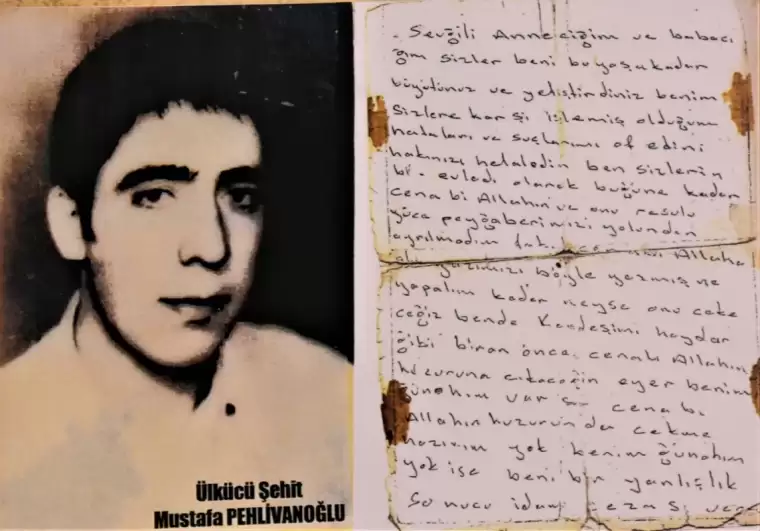 Ülkücü Şehit
Mustafa PEHLİVANOĞLU
Sevğili Anneciğim ve babacı
ğım sizler beni bu yaşa kadar
büyütünüz ve yetiştirdiniz benim
Sizlere karşı işlemiş olduğum
hataları ve suçlarımı af edini
hakınızı helaledin ben sizlerin
bi- evledı olarak buğüne kadar
cena bi Allahın ve onu rasulu
yüce peyğaberimizi yolundan
ayrılmadım Allaha
yazımızı böyle yazmış ne
yapalım kader neyse onu çeke
ceğiz bende Kardeşimi haydar
ğibi biran önce cenabı Allahın
huzuruna çıkacağın eyer benim
ğünahım varsa cena bı
Allahın huzurunda çekme
hazırım yok benim ğünahım
yok ise beni bir yanlışlık
Sonucu idam ceza sı